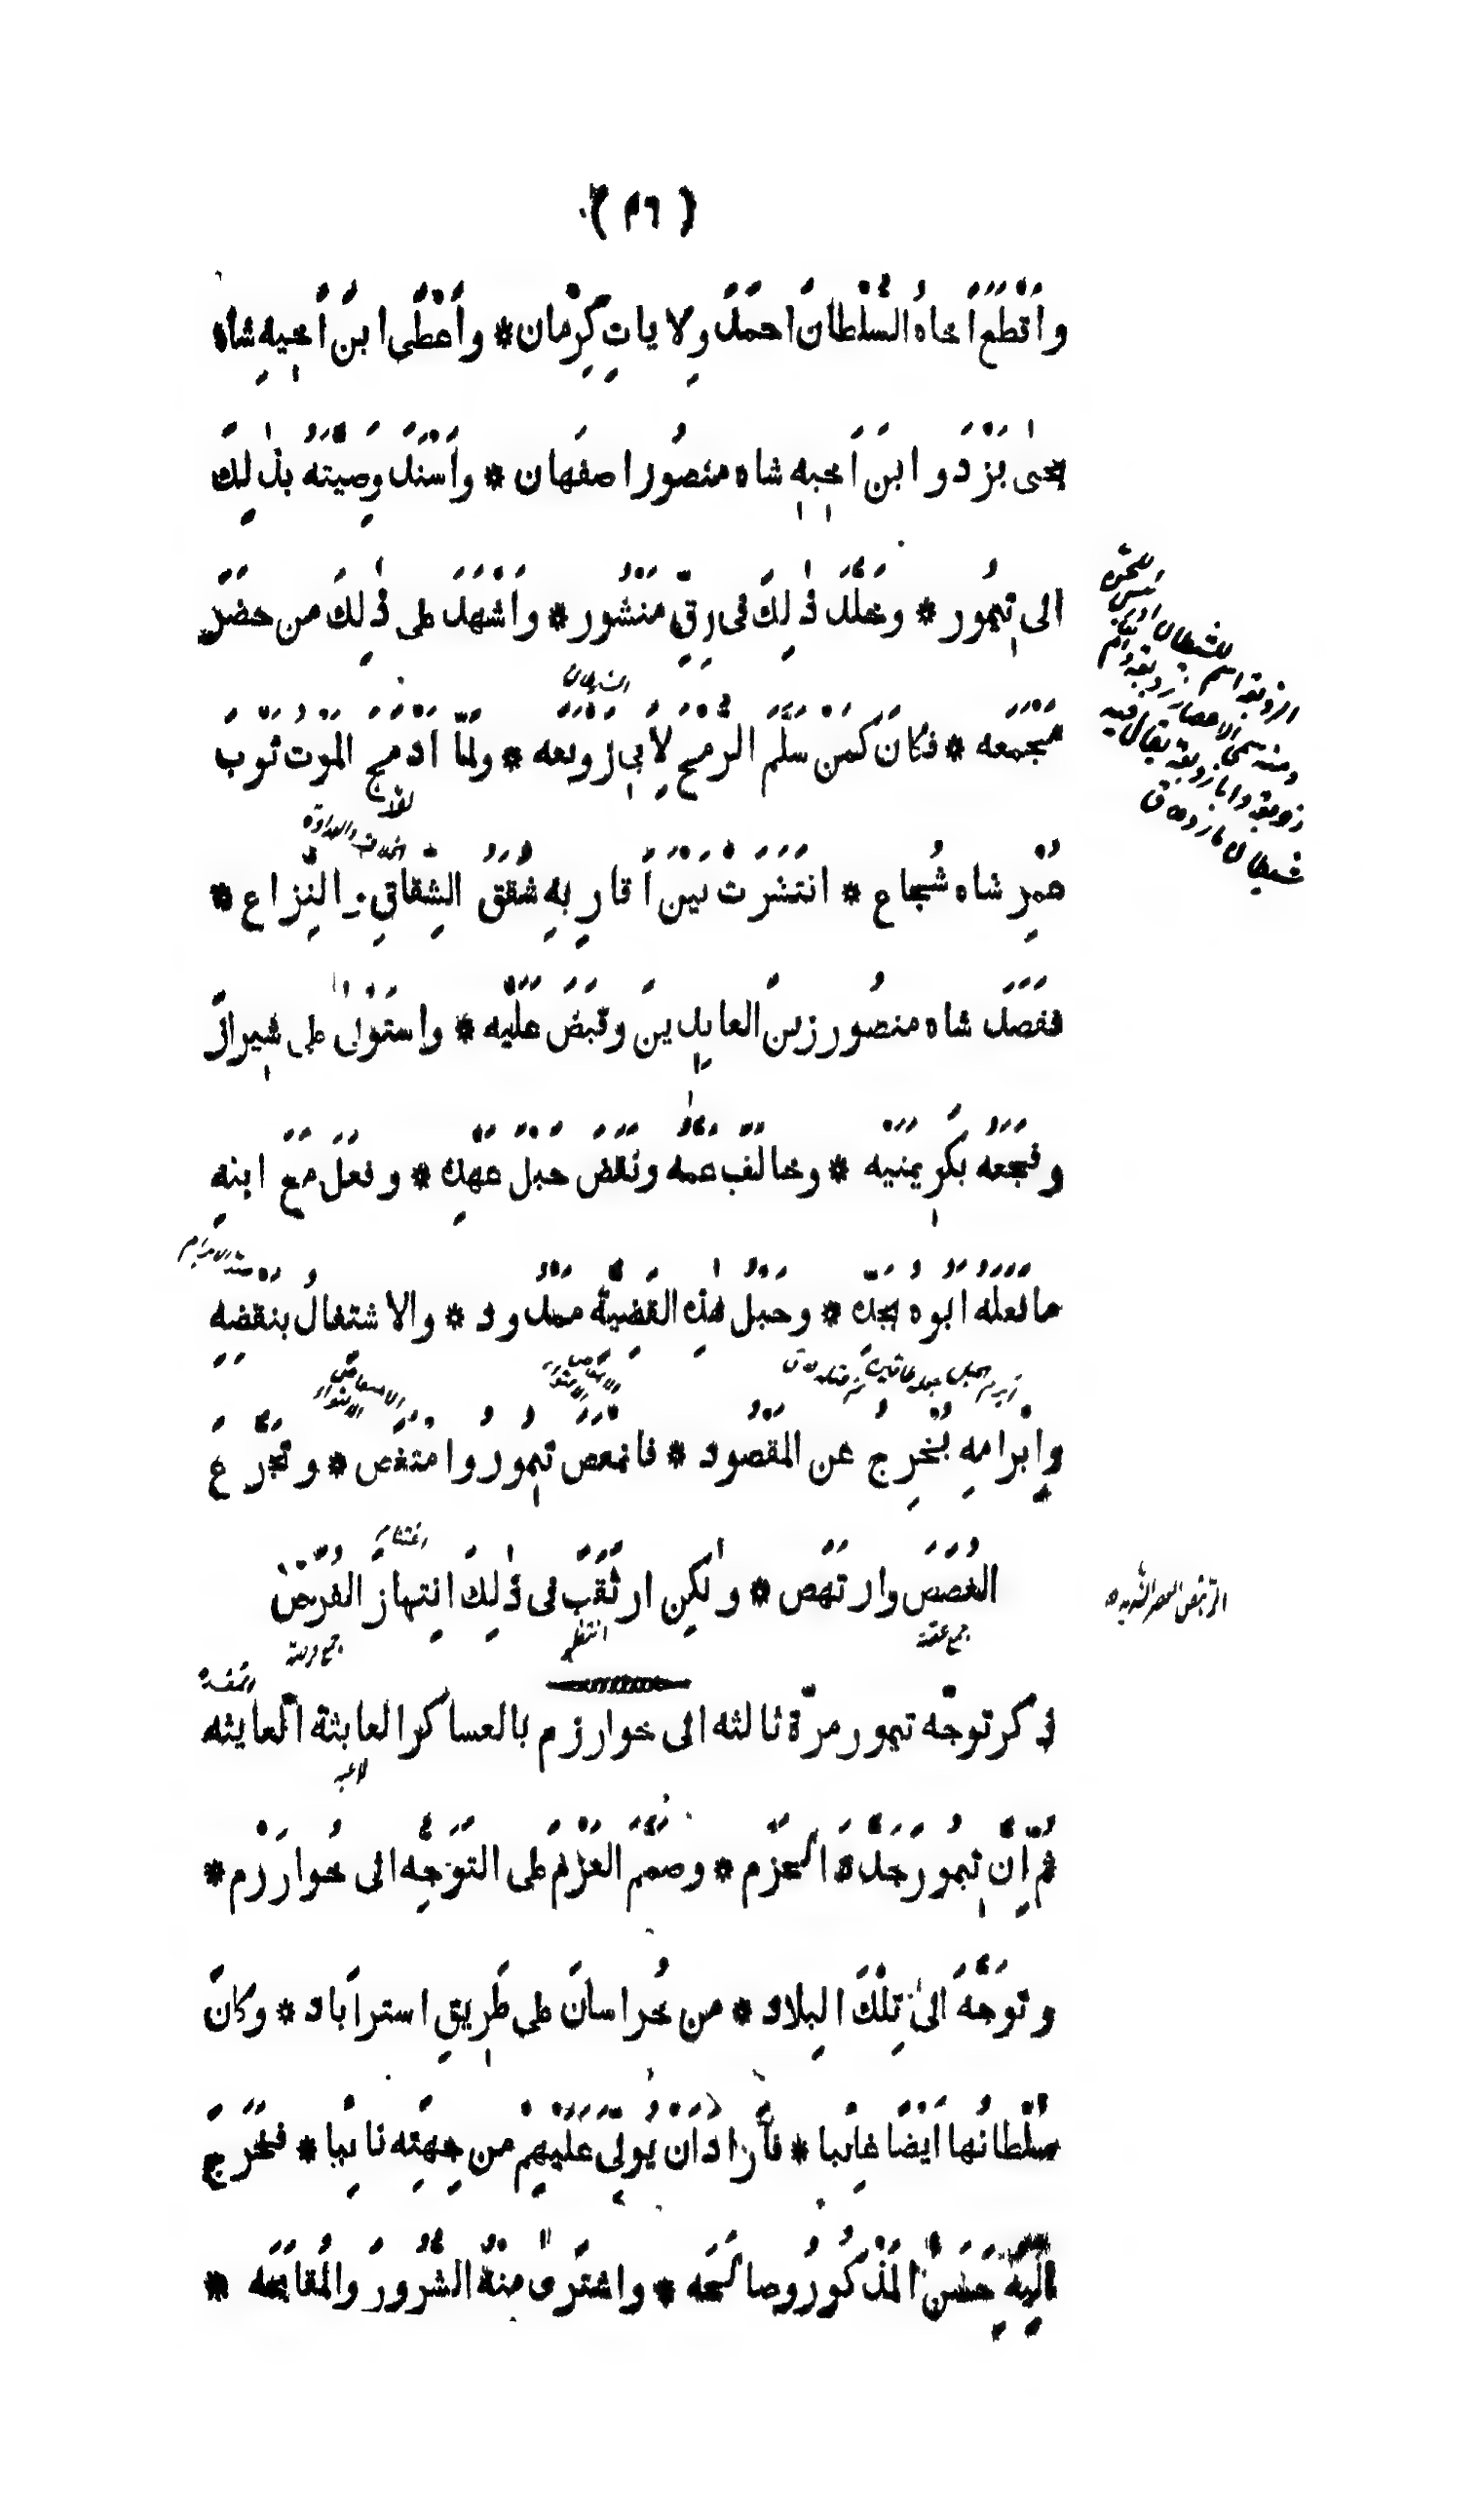 (٢٦)
واَقْطَعَ اَخاهُ السُّلْطانَ احمَدَ وِلاياتِ كِرْمان * واَعْطى ابنَ اَخِيهِ شاه
يحيٰى يَزْدَ وابنَ اَخِيهِ شاه منصُور اصفَهان * واَسْنَدَ وصِيَّتَهُ بذٰلِكَ
الى تِيمُور * وخلَّدَ ذٰلِكَ فى رِقٍّ مَنْشُور * واَشْهَدَ على ذٰلِكَ من حضَرَ
مَجْمَعَه * فكانَ كمَنْ سَلَّمَ الرُّمْحَ لِأَبى زَوْبَعَه * ولمَّا اَدْمَجَ المَوْتُ ثَوْبَ
الشيطان
عُمْرِ شاه شُجاع * انتَشَرَتْ بَيْنَ اَقارِبِهِ شُقَقُ الشِقاقِ والنِزاع *
فقَصَدَ شاه منصُور زينَ العابِدِينَ وقبَضَ عَلَيْه * واستَوْلٰى على شِيرازَ
وفَجَعَهُ بكَرِيمَتَيْه * وخالَفَ عمَّهُ ونَقَضَ حَبْلَ عَهْدِه * وفعَلَ مَعَ ابنِهِ
ما فعَلَهُ ابُوهُ بجَدِّه * وحَبْلُ هٰذِهِ القَضِيَّةِ ممْدُود * والاشتغالُ بنَقْضِهِ
وإبْرامِهِ يُخْرِجُ عن المَقْصُود * فامْتَعَضَ تِيمُورُ وامتَعَصَ * وتجَرَّعَ
الغُصَصَ وارتَهَص * ولٰكِن ارتَقَبَ فى ذٰلِكَ انتِهازَ الفُرَصْ
انتظر
جمع غصة
جمع فرصة
ذكر توجّه تيمور مرّة ثالثه الى خوارزم بالعساكر العابثة العايثه
ثُمّ اِنَّ تِيمُور جَدَّدَ الحَزْم * وصَمَّمَ العَزْمَ على التوَجُّهِ الى خُوارَزْم *
وتوَجَّهَ الىٰ تِلْكَ البِلاد * من خُراسانَ على طَرِيقِ استراَباد * وكانَ
سُلْطانُها اَيْضًا غائِبا * فأَرادَ اَنْ يُولِّىَ عَلَيْهِمْ من جِهَتِه نائِبا * فخَرَجَ
اِلَيْهِ حَسَنُ المَذْكُورُ وصالَحَه * واشتَرٰى مِنْهُ الشُّرُورَ والمُقابَحَه *